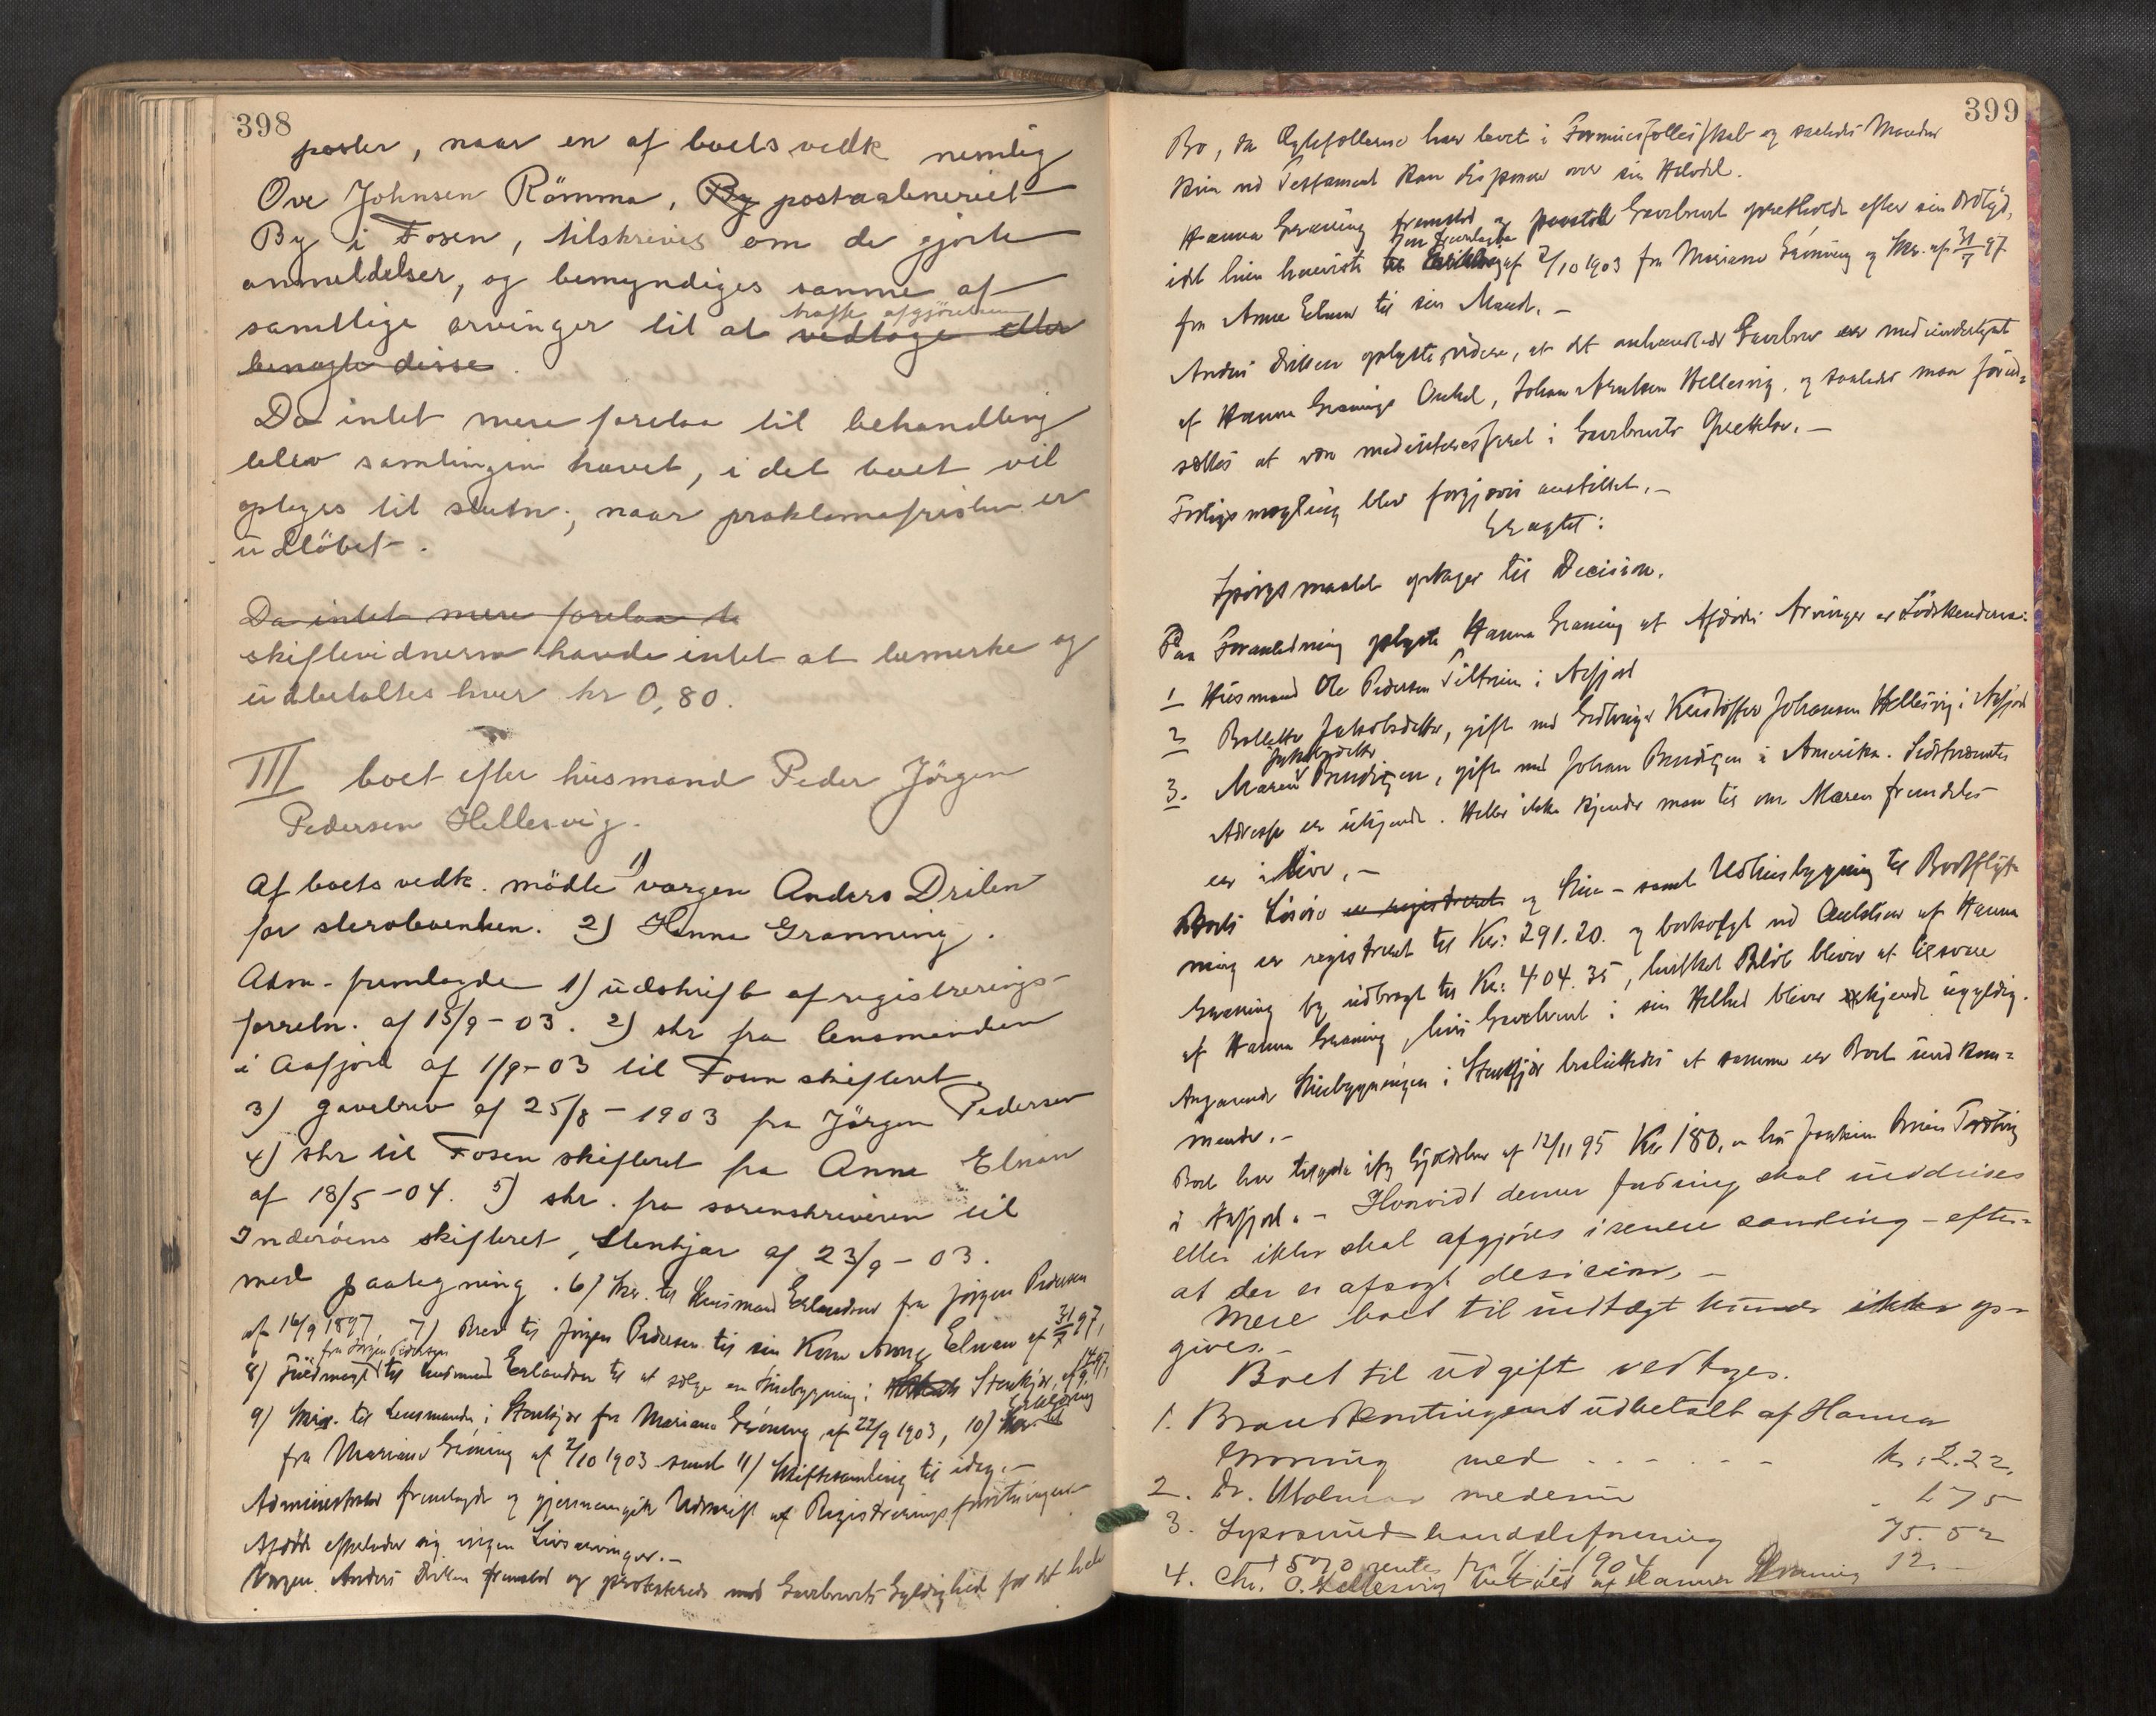 398
poster, naar en af boets vedk nemlig
Ove Johnsen Römma, By postaabneriet
By i Fosen, tilskrives om de gjorte
anmeldelser, og bemyndiges samme af
træffe afgjörelsen
samtlige arvinger til at vedtage eller
benegte disse.
Da intet mere forelaa til behandling
blev samlingen hævet, i det boet vil
optages til slutn., naar proklamafristen er
udlöbet.
Da intet mere forelaa te
skiftevidnerne havde intet at bemerke og
udbetaltes hver kr 0,80.
III boet efter husmand Peder Jörgen
Pedersen Hellesvig.
Af boets vedk. mödte 1) værgen Anders Drilen
for sterboenken. 2) Hanna Granning.
Adm. fremlagde 1) udskrift af registrerings-
forretn. af 15/9-03. 2) skr fra lensmanden
i Aafjord af 1/9-03 til Fosen skifteret.
3) gavebrev af 25/8-1903 fra Jörgen Pedersen
4) skr til Fosen skifteret fra Anne Elnan
af 18/5-04. 5) skr. fra sorenskriveren til
Inderöens skifteret, Stenkjær af 23/9-03.
med paategning. 6) Skr. til Husmand Erlandsen fra Jörgen Pedersen
af 16/9 1897, 7) Brev til Jörgen Pedersen til sin Kone Anne Elnan af 31/7 97,
fra Jörgen Pedersen
8) Fuldmagt til husmand Erlandsen til at sælge en Stuebygning i Stenkjær, af 14/9 97,
9) Skr. til Lensmanden i Stenkjær fra Mariane Gröning af 22/9 1903, 10) Erklæring
fra Mariane Gröning af 2/10 1903 samt 11) Skiftesamling til idag.-
Administrator fremlagde og gjennemgik Udskrift af Registreringsforretningen
Afdöde efterlader sig ingen Livsarvinger.-
Værgen Anders Drilen fremstod og protesterede mod Gavebrevets Gyldighed for det hele
399
Bo, da Ægtefællerne har levet i Formuesfællesskab og saaledes Manden
kun ved Testament kan disponere over sin Halvdel.
Hanna Graning fremstod og paastod Gavebrevet opretholdt efter sin Ordlyd,
den fremlagte
idet hun henviste til Erklæring af 2/10 1903 fra Mariane Gröning og Skr. af 31/7 97
fra Anne Elnan til sin Mand.-
Anders Drilen oplyste videre, at det omhandlede Gavebrev er medunderskrevet
af Hanna Granings Onkel, Johan Arntsen Hellesvig, og saaledes maa forud-
sættes at være medinteresseret i Gavebrevets Oprettelse.-
Forligsmægling blev forgjæves anstillet.-
Eragtet:
Spörgsmaalet optages til Decision.
Paa Foranledning oplyste Hanna Graning at Afdödes Arvinger er Södskenderne:
1 Husmand Ole Pedersen Teltrein i Aafjord
2 Bollette Jakobsdatter, gift med Gaardbruger Kristoffer Johansen Hellesvig i Aafjord
Jakobsdatter
3. Maren Bendigsen, gift med Johan Bendigsen i Amerika. Sidstnævntes
Adresse er ukjendt. Heller ikke kjender man til om Maren fremdeles
er ilive.-
Boets Lösöre er registreret og Stue- samt Udhusbygning til Bortflyt-
ning er registreret til Kr: 291.20. og bortsolgt ved Auktion af Hanna
Graning og udbragt til Kr: 404.35, hvilket Belöb bliver at tilsvare
af Hanna Graning, hvis Gavebrevet i sin Helhed bliver kjendt ugyldig.
Angaaende Stuebygningen i Stenkjær besluttedes at samme er Boet uvedkom-
mende.-
Boet har tilgode ifg Gjældsbrev af 12/11 95 Kr 180,- hos Joakim
i Aafjord.- Hvorvidt denne fordring skal inddrives
eller ikke skal afgjöres i senere samling - efter-
at der er afsagt desicion.-
Mere boet til indtægt kunde ikke op-
gives.-
Boet til udgift vedtoges.
1. Brandkontingent udbetalt af Hanna
Groning med . . - . - - kr. 2.22.
2. Dr. medesin - 2 75
3. Lysösund handelsforening 75. 52
+ 5% rente fra 1/1 1904
4. Chr. O. Hellesvig af Hanna Graning 12. -